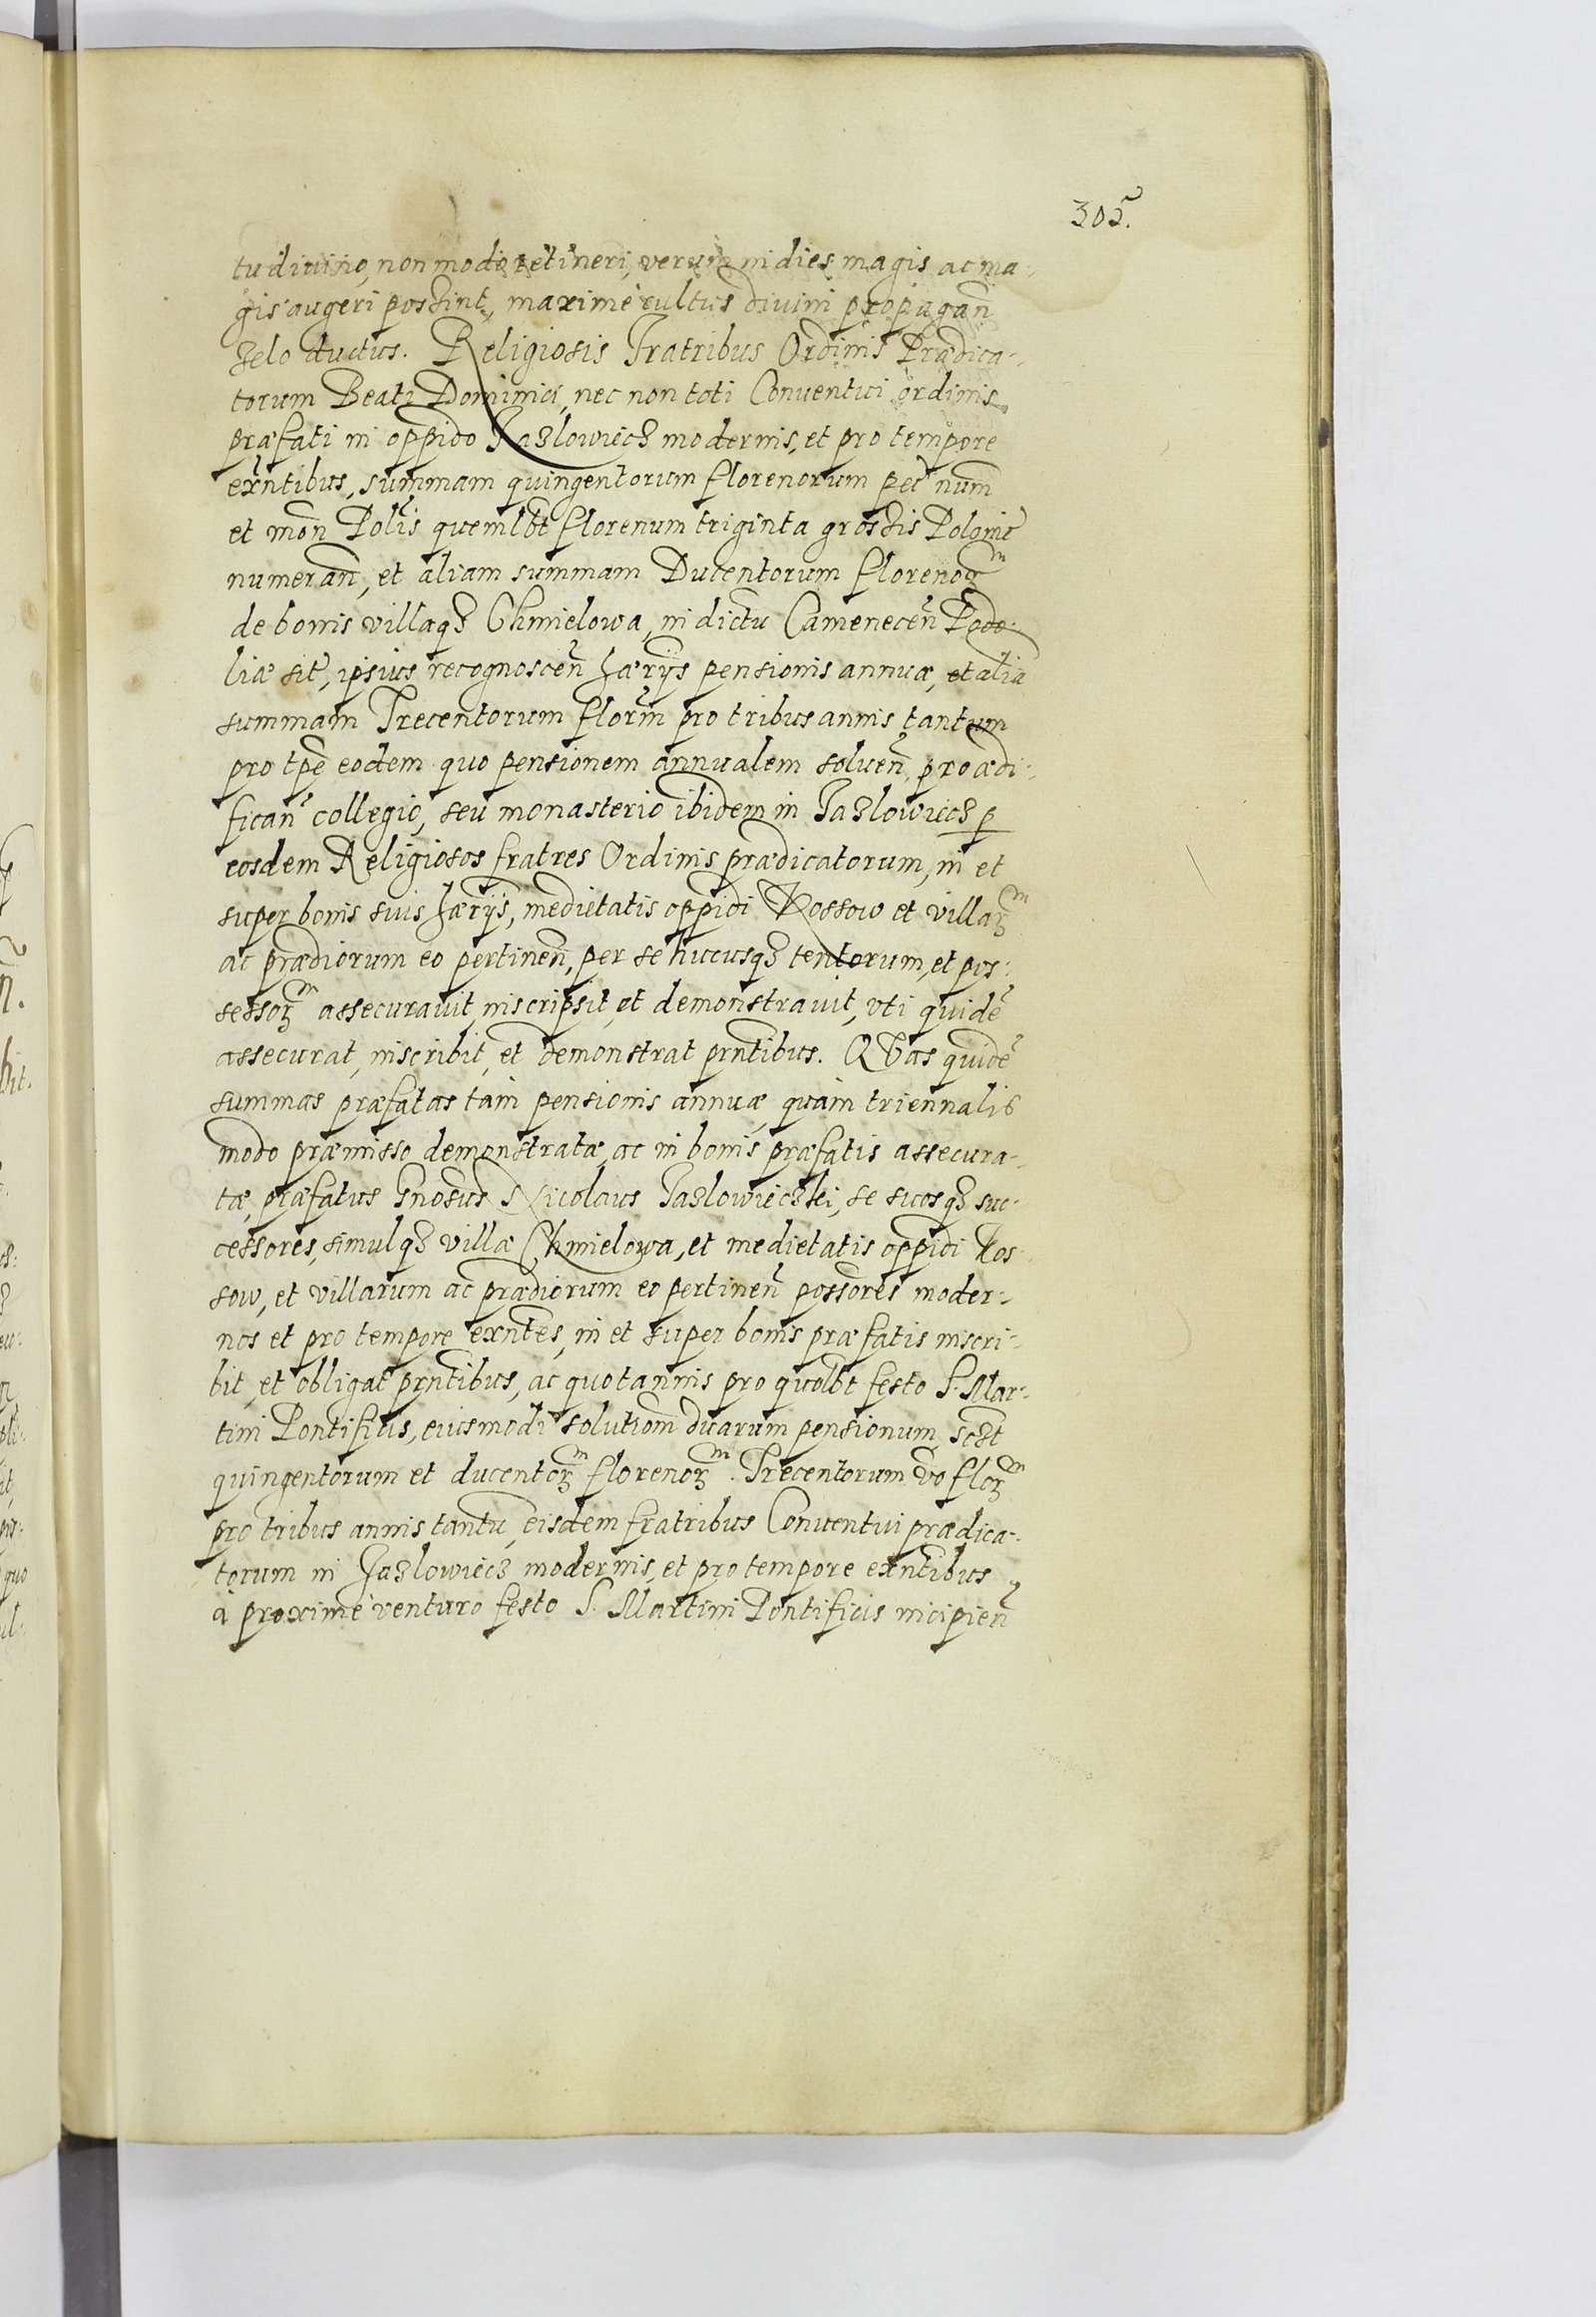 305.
tu divino, non modo retineri, verum in dies magis ac ma-
gis augeri possint, maximè cultus divini propagan̄
zelo ductus. Religiosis Fratribus Ordinis Prædica-
torum Beati Dominici, nec non toti Conventui ordinis
præfati in oppido Jazlowiecz modernis, et pro tempore
exn̄tibus, summam quingentorum florenorum pec̄ num̄
et mon̄ Pol̄is quemlbt florenum triginta grossis Polonic̄
numeran̄, et aliam summam Ducentorum florenoꝝm
de bonis villaqꝫ Chmielowa, in dictu Camenecen̄ Podo-
liæ sit̄, ipsius recognoscen̄ hærijs pensionis annuæ, et alia
summam Trecentorum florm̄ pro tribus annis tantum
pro tp̄e eodem quo pensionem annualem solven̄, pro ædi-
fican̄ collegio, seu monasterio ibidem in Jazlowiecz p̱
eosdem Religiosos fratres Ordinis prædicatorum, in et
super bonis suis hærijs, medietatis oppidi Kossow et villaꝝm
ac prædiorum eo pertinen̄, per se hucusqꝫ tentorum, et pos-
sessoꝝm assecuravit, inscripsit, et demonstravit, vti quidē
assecurat, inscribit, et demonstrat prn̄tibus. QVas quidē
summas præfatas tàm pensionis annuæ quàm triennalis
modo præmisso demonstratæ, ac in bonis præfatis assecura-
tæ, præfatus Gnosus Nicolaus Jazlowieczki, se suosqꝫ suc-
cessores, simulqꝫ villæ Chmielowa, et medietatis oppidi Kos-
sow, et villarum ac prædiorum eo pertinen̄ poss̄ores moder-
nos et pro tempore exn̄tes, in et super bonis præfatis inscri-
bit, et obligat prn̄tibus, ac quotannis pro quolbt festo S. Mar-
tini Pontificis, eiusmodi solutiom̄ duarum pensionum, sclt
quingentorum et ducentoꝝm florenoꝝm. Trecentorum vo floꝝm
pro tribus annis tantū, eisdem fratribus Conventui prædica-
torum in Jazlowiecz modernis, et pro tempore exn̄tibus
à proximè venturo festo S. Martini Pontificis incipien̄